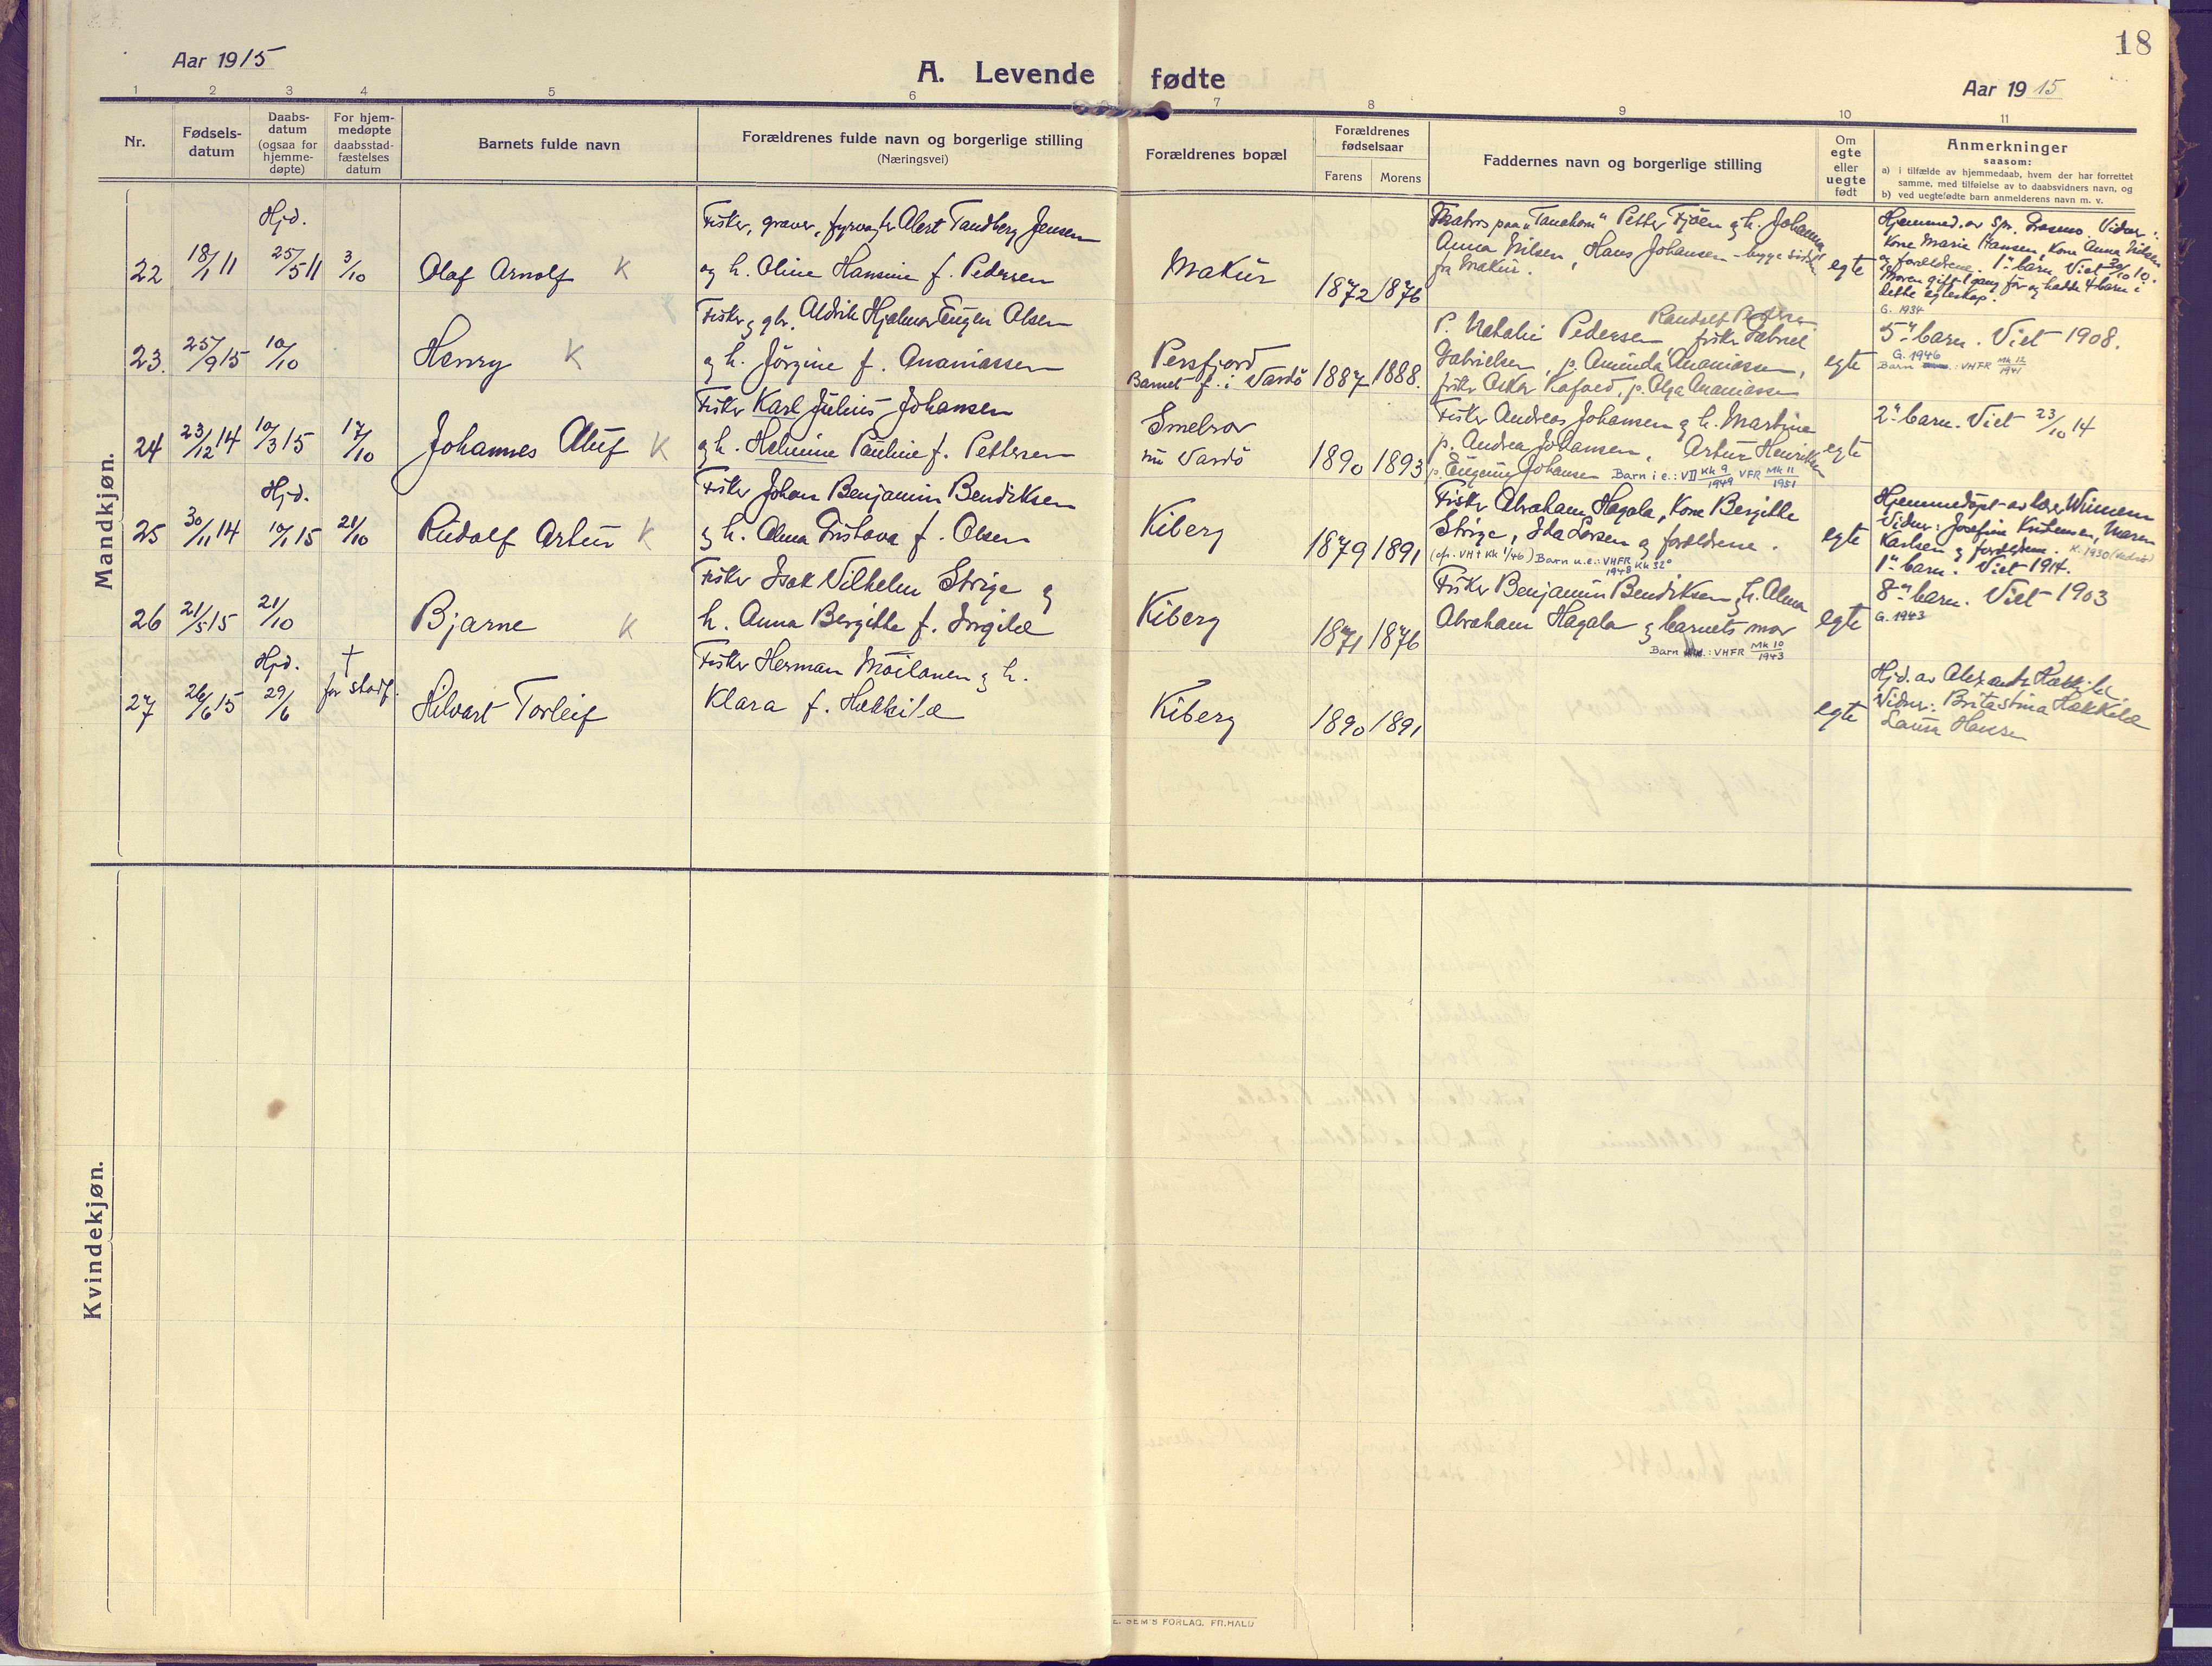 18
Aar 1915
A. Levende fødte
Aar 1915
1 2 3 4 5 6 7 8 9 10 11
Nr.
Fødsels-
datum
Daabs-
datum
(ogsaa for
hjemme-
døpte)
For hjem-
medøpte
daabsstad-
fæstelses
datum
Barnets fulde navn
Forældrenes fulde navn og borgerlige stilling
(Næringsvei)
Forældrenes bopæl
Forældrenes
fødselsaar
Farens Morens
Faddernes navn og borgerlige stilling
Om
egte
eller
uegte
født
Anmerkninger
saasom:
a) i tilfælde av hjemmedaab, hvem der har forrettet
samme, med tilføielse av to daabsvidners navn, og
b) ved uegtefødte barn anmelderens navn m. v.
Mandkjøn.
22
18/1 11
Hjd.
25/5 11
3/10
Olaf Arnolf K
Fisker, graver, fyrvogter Alert Tandberg Jensen
og h. Oline Hansine f. Pedersen
Makur
1872 1876
Matros paa "Tanahorn" Petter Fjøen og h. Johanna
Anna Nilsen, Hans Johansen - begge
fra Makur.
egte
Hjemmed. av Spr. Vidner:
Kone Marie Hansen, Kone Anna Nilsen
og forældrene. 1ste barn. Viet 30/10 10.
Moren gift 1 gang før og hadde 4 barn i
dette egteskap.
G. 1934
23.
25/9 15
10/10
Henry K
Fisker og gbr. Aldrik Hjalmar Eugen Olsen
og h. Jörgine f. Ananiassen
Persfjord
Barnet f. i Vardö
1887 1888.
P. Natalie Pedersen fisker Gabriel
Gabrielsen, p. Aminda Ananiassen,
fisker Asker Kofoed, p. Olga Ananiassen
egte
5te barn. Viet 1908.
G. 1946
Barn : VHFR Mk 12/1941
24
23/12 14
10/3 15
17/10
Johannes Aluf K
Fisker Karl Julius Johansen
og h. Helmine Pauline f. Pettersen
Smelror
nu Vardö
1890 1893
Fisker Andreas Johansen og h. Martine
p. Andrea Johansen, Artur Henriksen
p. Eugenie Johansen Barn i e.: VD Kk 9/1949 VFR Mk 11/1951
egte
2et barn. Viet 23/10 14
25
30/11 14
Hjd.
10/1 15
21/10
Rudolf Artur K
Fisker Johan Benjamin Bendiksen
og h. Alma Gustava f. Olsen
Kiberg
1879 1891
Fisker Abraham Hagala, Kone Bergitte
Strige, Ida Larsen og forældrene.
(op. VH+ Kk 1/46) Barn u.e.: VHFR 1948 Kk 32
egte
Hjemmedöpt av lærer
Vidner: Josefine Kristensen, Maren
Karlsen og forældrene. K. 1930
1ste barn. Viet 1914.
26
21/5 15
21/10
Bjarne K
Fisker Isak Vilhelm Strige og
h. Anna Bergitte f. Ingilæ
Kiberg
1871 1876
Fisker Benjamin Bendiksen og h. Alma
Abraham Hagala og barnets mor
Barn : VHFR Mk 10/1943
egte
8de barn. Viet 1903
G. 1943
27
26/6 15
Hjd.
29/6
†
før stadf.
Hilvart Torleif
Fisker Herman Moilanen og h.
Klara f. Hekkilæ
Kiberg
1890 1891
egte
Hjd. av Alexander Hekkilæ.
Vidner: Brita Stina Hekkilæ
Laura Hansen
Kvindekjøn.
SEM'S FORLAG. FR. HALD